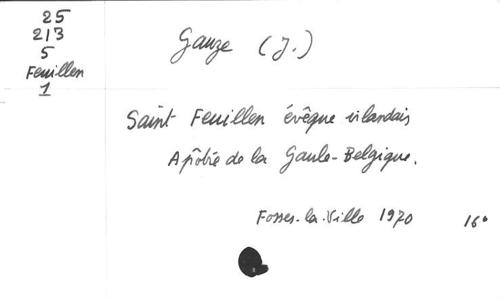 25
213
5
Feuillen
1
Gauze (J.)
Saint Feuillen évêque irlandais
Apôtre de la Gaule-Belgique.
Fosses-la-Ville 1970 16°